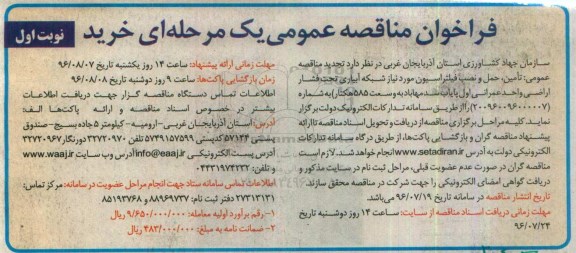 فراخوان مناقصه عمومی یک مرحله‌ای خرید
نوبت اول
سازمان جهاد کشاورزی استان آذربایجان غربی در نظر دارد تجدید مناقصه
عمومی: تأمین، حمل و نصب فیلتراسیون مورد نیاز شبکه آبیاری تحت فشار
اراضی واحد عمرانی اول پایاب سد مهاباد به وسعت ۵۸۵ هکتار) به شماره
(۲۰۰۹۶۰۰۰۹۶۰۰۰۰۰۷) را از طریق سامانه تدارکات الکترونیک دولت برگزار
نماید. کلیه مراحل برگزاری مناقصه از دریافت و تحویل اسناد مناقصه تا ارائه
پیشنهاد مناقصه گران و بازگشایی پاکت‌ها، از طریق درگاه سامانه تدارکات
الکترونیکی دولت به آدرس www.setadiran.ir انجام خواهد شد. لازم است
مناقصه گران در صورت عدم عضویت قبلی، مراحل ثبت نام در سایت مذکور و
دریافت گواهی امضای الکترونیکی را جهت شرکت در مناقصه محقق سازند.
تاریخ انتشار مناقصه در سامانه تاریخ ۹۶/۰۷/۱۹ می‌باشد.
مهلت زمانی دریافت اسناد مناقصه از سایت: ساعت ۱۴ روز دوشنبه تاریخ
۹۶/۰۷/۲۴
مهلت زمانی ارائه پیشنهاد: ساعت ۱۴ روز یکشنبه تاریخ ۹۶/۰۸/۰۷
زمان بازگشایی پاکت‌ها: ساعت ۹ روز دوشنبه تاریخ ۹۶/۰۸/۰۸
اطلاعات تماس دستگاه مناقصه گزار جهت دریافت اطلاعات
بیشتر در خصوص اسناد مناقصه و ارائه پاکت‌ها الف:
آدرس: استان آذربایجان غربی-ارومیه- کیلومتر ۵ جاده بسیج- صندوق
پستی ۵۷۱۴۴ کدپستی ۵۷۴۹۱۵۷۵۹۹ تلفن ۳۲۷۲۰۹۷۰ دورنگار ۳۲۷۲۰۹۶۷
آدرس پست الکترونیکی info@eaaj.ir آدرس وب سایت www.waaj.ir
و تلفن: ۰۴۴۳۱۹۷۴۲۳۲
اطلاعات تماس سامانه ستاد جهت انجام مراحل عضویت در سامانه: مرکز تماس:
۲۷۳۱۳۱۳۱ دفتر ثبت نام: ۸۸۹۶۹۷۳۷ و ۸۵۱۹۳۷۶۸
۱- رقم برآورد اولیه معامله: ۹/۶۵۰/۰۰۰/۰۰۰ ریال
۲- ضمانت نامه به مبلغ: ۴۸۳/۰۰۰/۰۰۰ ریال